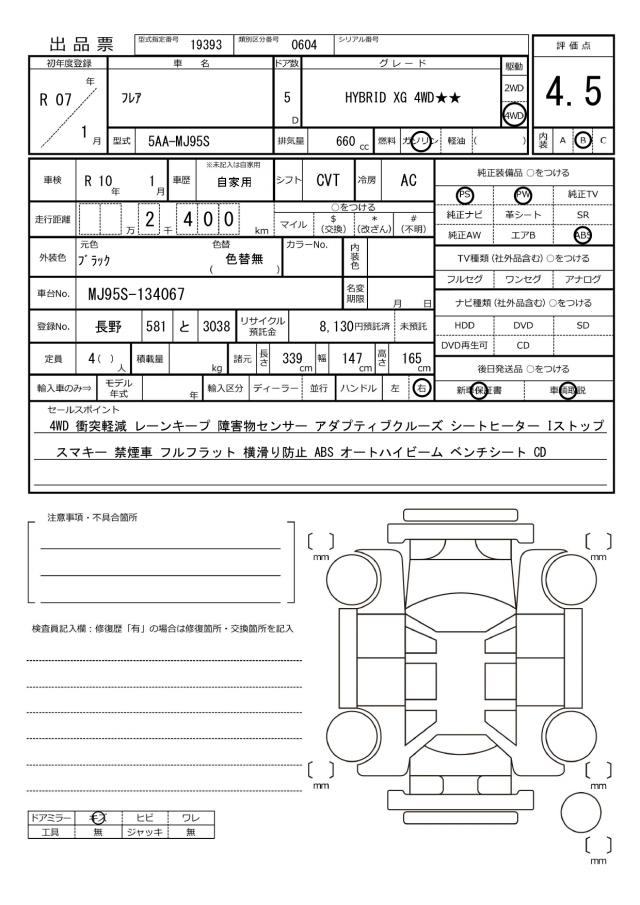 出品票 型式指定番号 19393 類別区分番号 0604 シリアル番号
評価点
4.5
内装 A B C
初年度登録 車名 ドア数 グレード 駆動
R 07 年 1 月 フレア 5 D HYBRID XG 4WD★★ 2WD 4WD
型式 5AA-MJ95S 排気量 660 cc 燃料 ガソリン 軽油 ( )
車検 R 10 年 1 月 車歴 ※未記入は自家用 自家用 シフト CVT 冷房 AC
走行距離 万 2 千 4 0 0 km ○をつける
マイル $ (交換) * (改ざん) # (不明)
外装色 元色 ブラック 色替 ( 色替無 ) カラーNo. 内装色
車台No. MJ95S-134067 名変期限 月 日
登録No. 長野 581 と 3038 リサイクル預託金 8,130円預託済 未預託
定員 4( ) 人 積載量 kg 諸元 長さ 339 cm 幅 147 cm 高さ 165 cm
輸入車のみ⇒ モデル年式 年 輸入区分 ディーラー 並行 ハンドル 左 右
純正装備品 ○をつける
PS PW 純正TV
純正ナビ 革シート SR
純正AW エアB ABS
TV種類(社外品含む)○をつける
フルセグ ワンセグ アナログ
ナビ種類(社外品含む)○をつける
HDD DVD SD
DVD再生可 CD
後日発送品 ○をつける
新車保証書 車輌取説
セールスポイント
4WD 衝突軽減 レーンキープ 障害物センサー アダプティブクルーズ シートヒーター Iストップ
スマキー 禁煙車 フルフラット 横滑り防止 ABS オートハイビーム ベンチシート CD
注意事項・不具合箇所
検査員記入欄：修復歴「有」の場合は修復箇所・交換箇所を記入
[ ] mm [ ] mm
[ ] mm [ ] mm
[ ] mm
ドアミラー キズ ヒビ ワレ
工具 無 ジャッキ 無